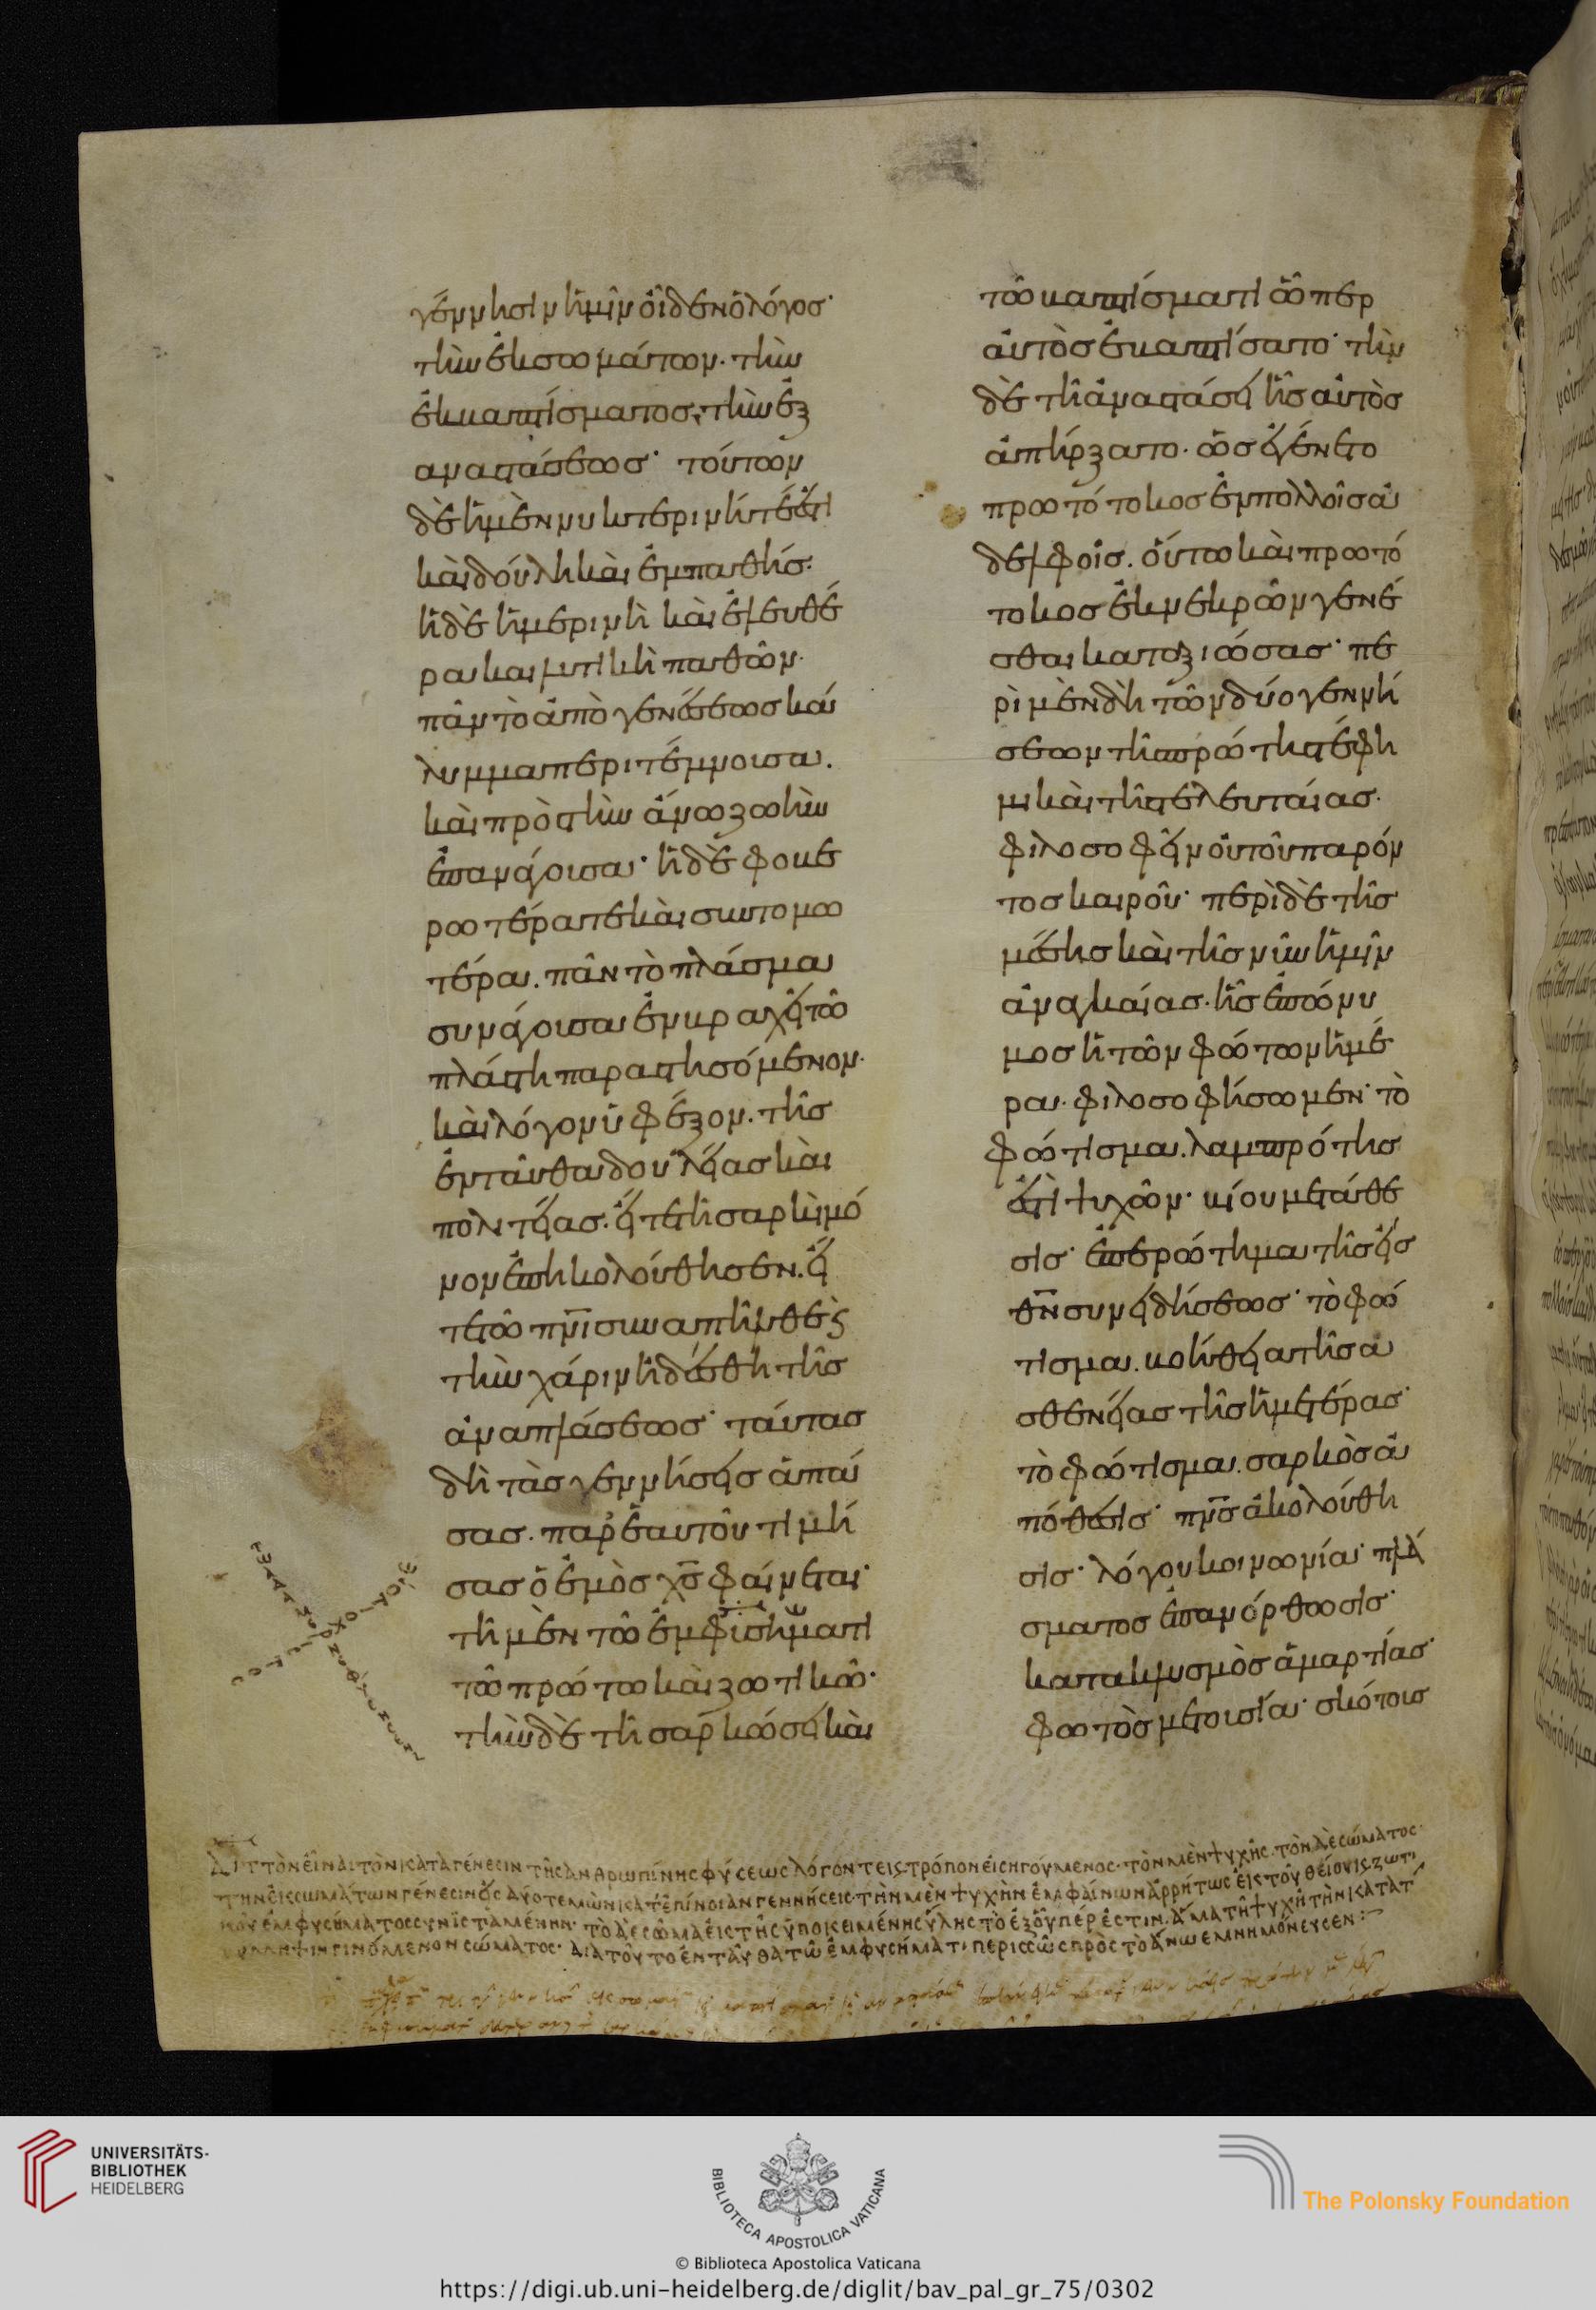 γέννησιν ἡμῖν οἶδεν ὁ λόγος·
τὴν ἐκ σωμάτων· τὴν
ἐκ βαπτίσματος· τὴν ἐξ
αναστάσεως· τούτων
δὲ ἡ μὲν νυκτερινή τέ ἐστι
καὶ δούλη καὶ ἐμπαθής·
ἡ δὲ ἡμερινὴ καὶ ἐλευθέ
ρα και λυτικὴ παθῶν·
πᾶν τὸ ἀπὸ γενέσεως κά
λυμμα περιτέμνουσα.
καὶ πρὸς τὴν ἄνω ζωὴν
ἐπανάγουσα· ἡ δὲ φοβε
ρωτέρα τε καὶ συντομω
τέρα. πᾶν τὸ πλάσμα
συνάγουσα ἐν βραχεῖ τῶ
πλάστη παραστησόμενον·
καὶ λόγον ὑφέξον. τῆς
ἐνταῦθα δουλείας καὶ
πολιτείας. εἴ τε τῆ σαρκὶ μό
νον ἐπηκολούθησεν. εἴ
τε τῶ πνι συναπῆλθε καὶ
τὴν χάριν ἠδέσθη τῆς
ἀναπλάσεως· ταύτας
δὴ τὰς γεννήσεις ἁπά
σας. παρ ἑαυτοῦ τιμή
σας ὁ ἐμὸς χς φαίνεται·
τῆ μὲν τῶ ἐμφυσήματι
τῶ πρώτω καὶ ζωτικῶ·
τὴν δὲ τῆ σαρκώσει καὶ
τῶ βαπτίσματι ὧπερ
αὐτὸς ἐβαπτίσατο· τὴν
δὲ τῆ ἀναστάσει ἧς αὐτὸς
ἀπήρξατο· ὡς ἐγένετο
πρωτότοκος ἐν πολλοῖς ἀ
δελφοῖς. οὕτω καὶ πρωτό
τοκος ἐκ νεκρῶν γενέ
σθαι καταξιώσας· πε
ρὶ μὲν δὴ τῶν δύο γεννή
σεων τῆς πρώτης τέ φη
μι καὶ τῆς τελευταίας·
φιλοσοφεῖν οὐ τοῦ παρόν
τος καιροῦ· περὶ δὲ τῆς
μέσης καὶ τῆς νῦν ἡμῖν
ἀναγκαίας· ἧς ἐπώνυ
μος ἡ τῶν φώτων ἡμέ
ρα· φιλοσοφήσωμεν· τὸ
φώτισμα. λαμπρότης
ἐστὶ ψυχῶν· βίου μετάθε
σις· ἐπερώτημα τῆς εἰς
θν συνειδήσεως· τὸ φώ
τισμα. βοήθεια τῆς ἀ
σθενείας τῆς ἡμετέρας·
τὸ φώτισμα. σαρκὸς ἀ
πόθεσις· πνς ἀκολούθη
σις· λόγου κοινωνία· πλά
σματος ἐπανόρθωσις·
κατακλυσμὸς ἁμαρτίας·
φωτὸς μετουσία· σκότους
Διττὸν εἶναι τὸν κατὰ γένεσιν τῆς ανθρωπίνης φύσεως λόγον τεις τρόπον εἰσηγούμενος· τὸν μὲν ψυχῆς· τὸν δὲ σώματος·
τὴν ἐκ σωμάτων γένεσιν εἰς δύο τεμὼν κατ᾽ ἐπίνοιαν γεννήσεις τὴν μὲν ψυχὴν ἐμφαίνων ἀρρήτως ἐκ τοῦ θείου κ ζωτι
κοῦ ἐμφυσήματος συνϊσταμένην· τὸ δὲ σῶμα ἐκ τῆς ὑποκειμένης ὕλης τὸ ἐξ οὗ πέρ ἐστιν. ἅμα τῆ ψυχῆ τὴν κατα τ
σύλληψιν γινόμενον σώματος· διατοῦτο ἐνταῦθα τῶ ἐμφυσήματι περισσῶς πρὸς τὸ ἄνω ἐμνημόνευσεν :-
UNIVERSITÄTS-
BIBLIOTHEK
HEIDELBERG
BIBLIOTECA APOSTOLICA VATICANA
The Polonsky Foundation
© Biblioteca Apostolica Vaticana
https://digi.ub.uni-heidelberg.de/diglit/bav_pal_gr_75/0302